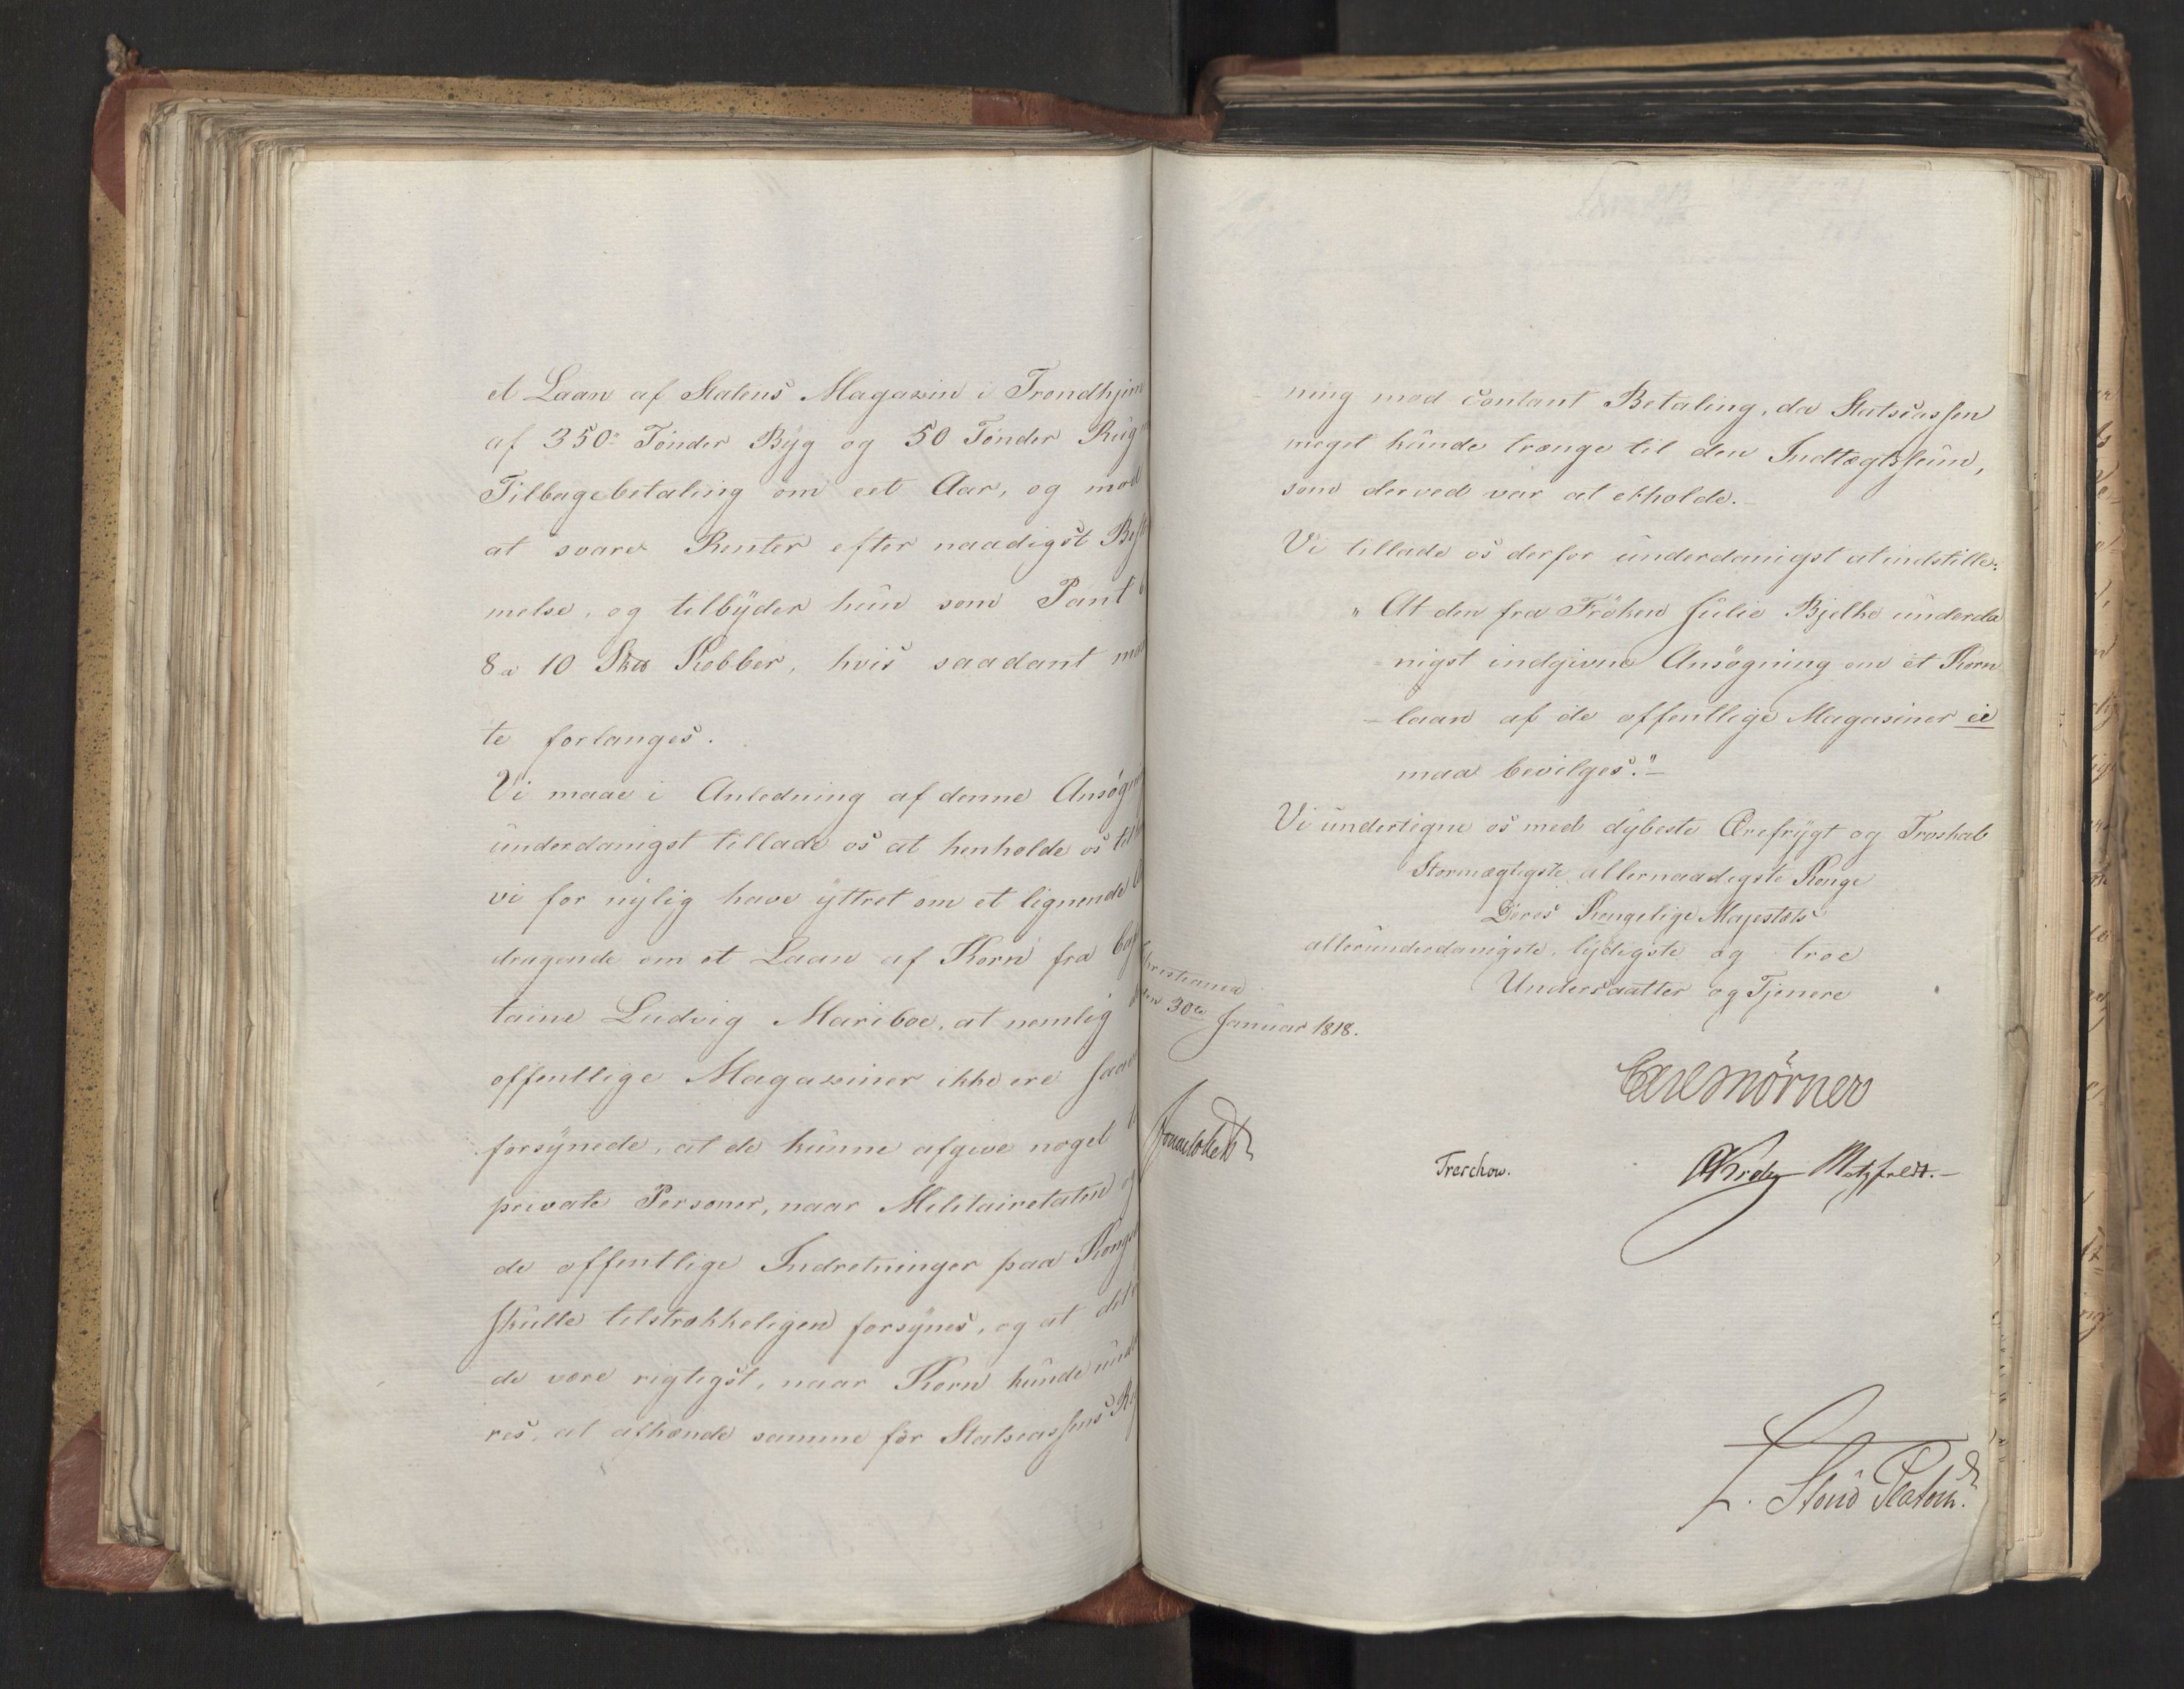 et Laan af Statens Magazin i Trondhjem
af 350 Tönder Byg og 50 Tönder Rug
Tilbagebetaling om eet Aar, og mod
at svare Renter efter naadigst Best
melse, og tilbyder hun som Pant
8 a 10 Sk℔ Kobber, hvis saadant maa
te forlanges.
Vi maae i Anledning af denne Ansøgn
underdanigst tillade os at henholde os til
vi for nylig have yttret om et lignende
dragende om et Laan af Korn fra Cap
taine Ludvig Mariboe, at nemlig
offentlige Magaziner ikke ere saa
forsynede, at de kunne afgive noget
private Personer, naar Militairetaten og
de offentlige Indretninger paa Kongs
skulle tilstrækkeligen forsynes, og at det
de være rigtigst, naar Korn kunde und
res, at afhænde samme for Statscassens Reg
ning mod contant Betaling, da Statscassen
meget kunde trænge til den Indtægtssum,
som derved var at erholde.
Vi tillade os derfor underdanigst at indstille:
"At den fra Fröken Julie Bjelke underda
nigst indgivne Ansøgning om et Korn
laan af de offentlige Magasiner ei
maa bevilges."
Vi undertegne os med dybeste Ærefrygt og Troskab
Stormægtigste, allernaadigste Konge
Deres Kongelige Majestæts
allerunderdanigste, lydigste og troe
Undersaatter og Tjenere
Christiania
den 30te Januar 1818.
Carl Mörner
Sommerhielm
Treschow. Krog Motzfeldt.
L. Stoud Platou